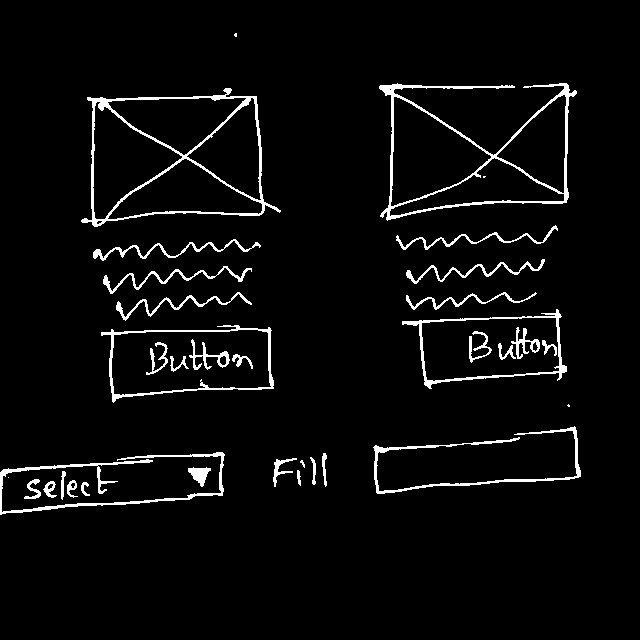 Button Button
select Fill